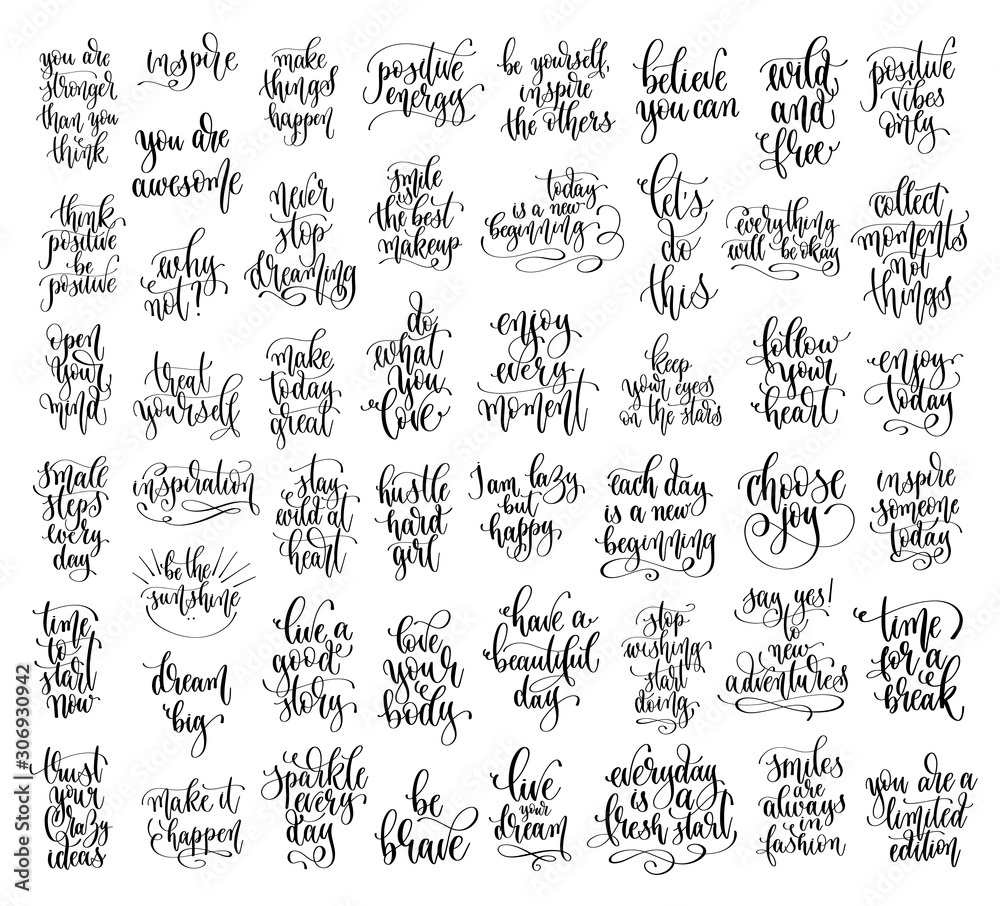 you are
stronger
than you
think
inspire
make
things
happen
positive
energy
be yourself,
inspire
the others
believe
you can
wild
and
free
positive
vibes
only
you are
awesome
think
positive
be
positive
why
not?
never
stop
dreaming
smile
is
the best
makeup
today
is a new
beginning
let's
do
this
everything
will be okay
collect
moments
not
things
open
your
mind
treat
yourself
make
today
great
do
what
you
love
enjoy
every
moment
keep
your eyes
on the stars
follow
your
heart
enjoy
today
small
steps
every
day
inspiration
stay
wild at
heart
hustle
hard
girl
I am lazy
but
happy
each day
is a new
beginning
choose
joy
inspire
someone
today
be the
sunshine
time
to
start
now
dream
big
live a
good
story
love
your
body
have a
beautiful
day
stop
wishing
start
doing
say yes!
to
new
adventures
time
for a
break
trust
your
crazy
ideas
make it
happen
sparkle
every
day
be
brave
live
your
dream
everyday
is a
fresh start
smiles
are
always
in
fashion
you are a
limited
edition
Adobe Stock | 306930942